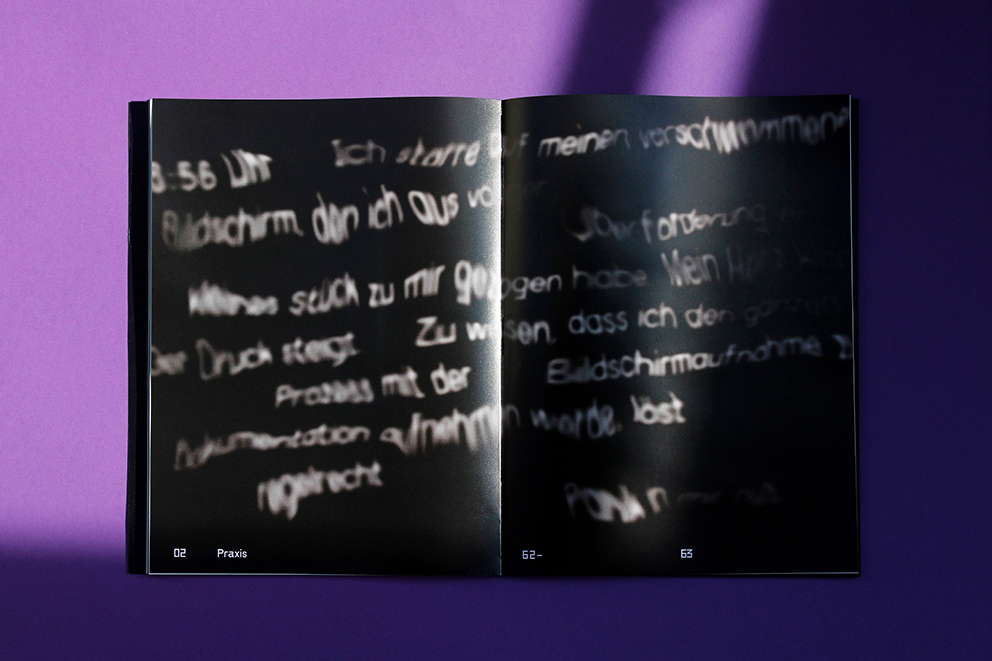 8:56 Uhr Ich starre auf meinen verschwommenen
Bildschirm, den ich aus Überforderung
kleines stück zu mir gezogen habe. Mein
Der Druck steigt Zu wissen, dass ich den ganzen
Prozess mit der Bildschirmaufnahme
Dokumentation aufnehmen werde, löst
regelrecht Panik in mir aus
02 Praxis 62– 63